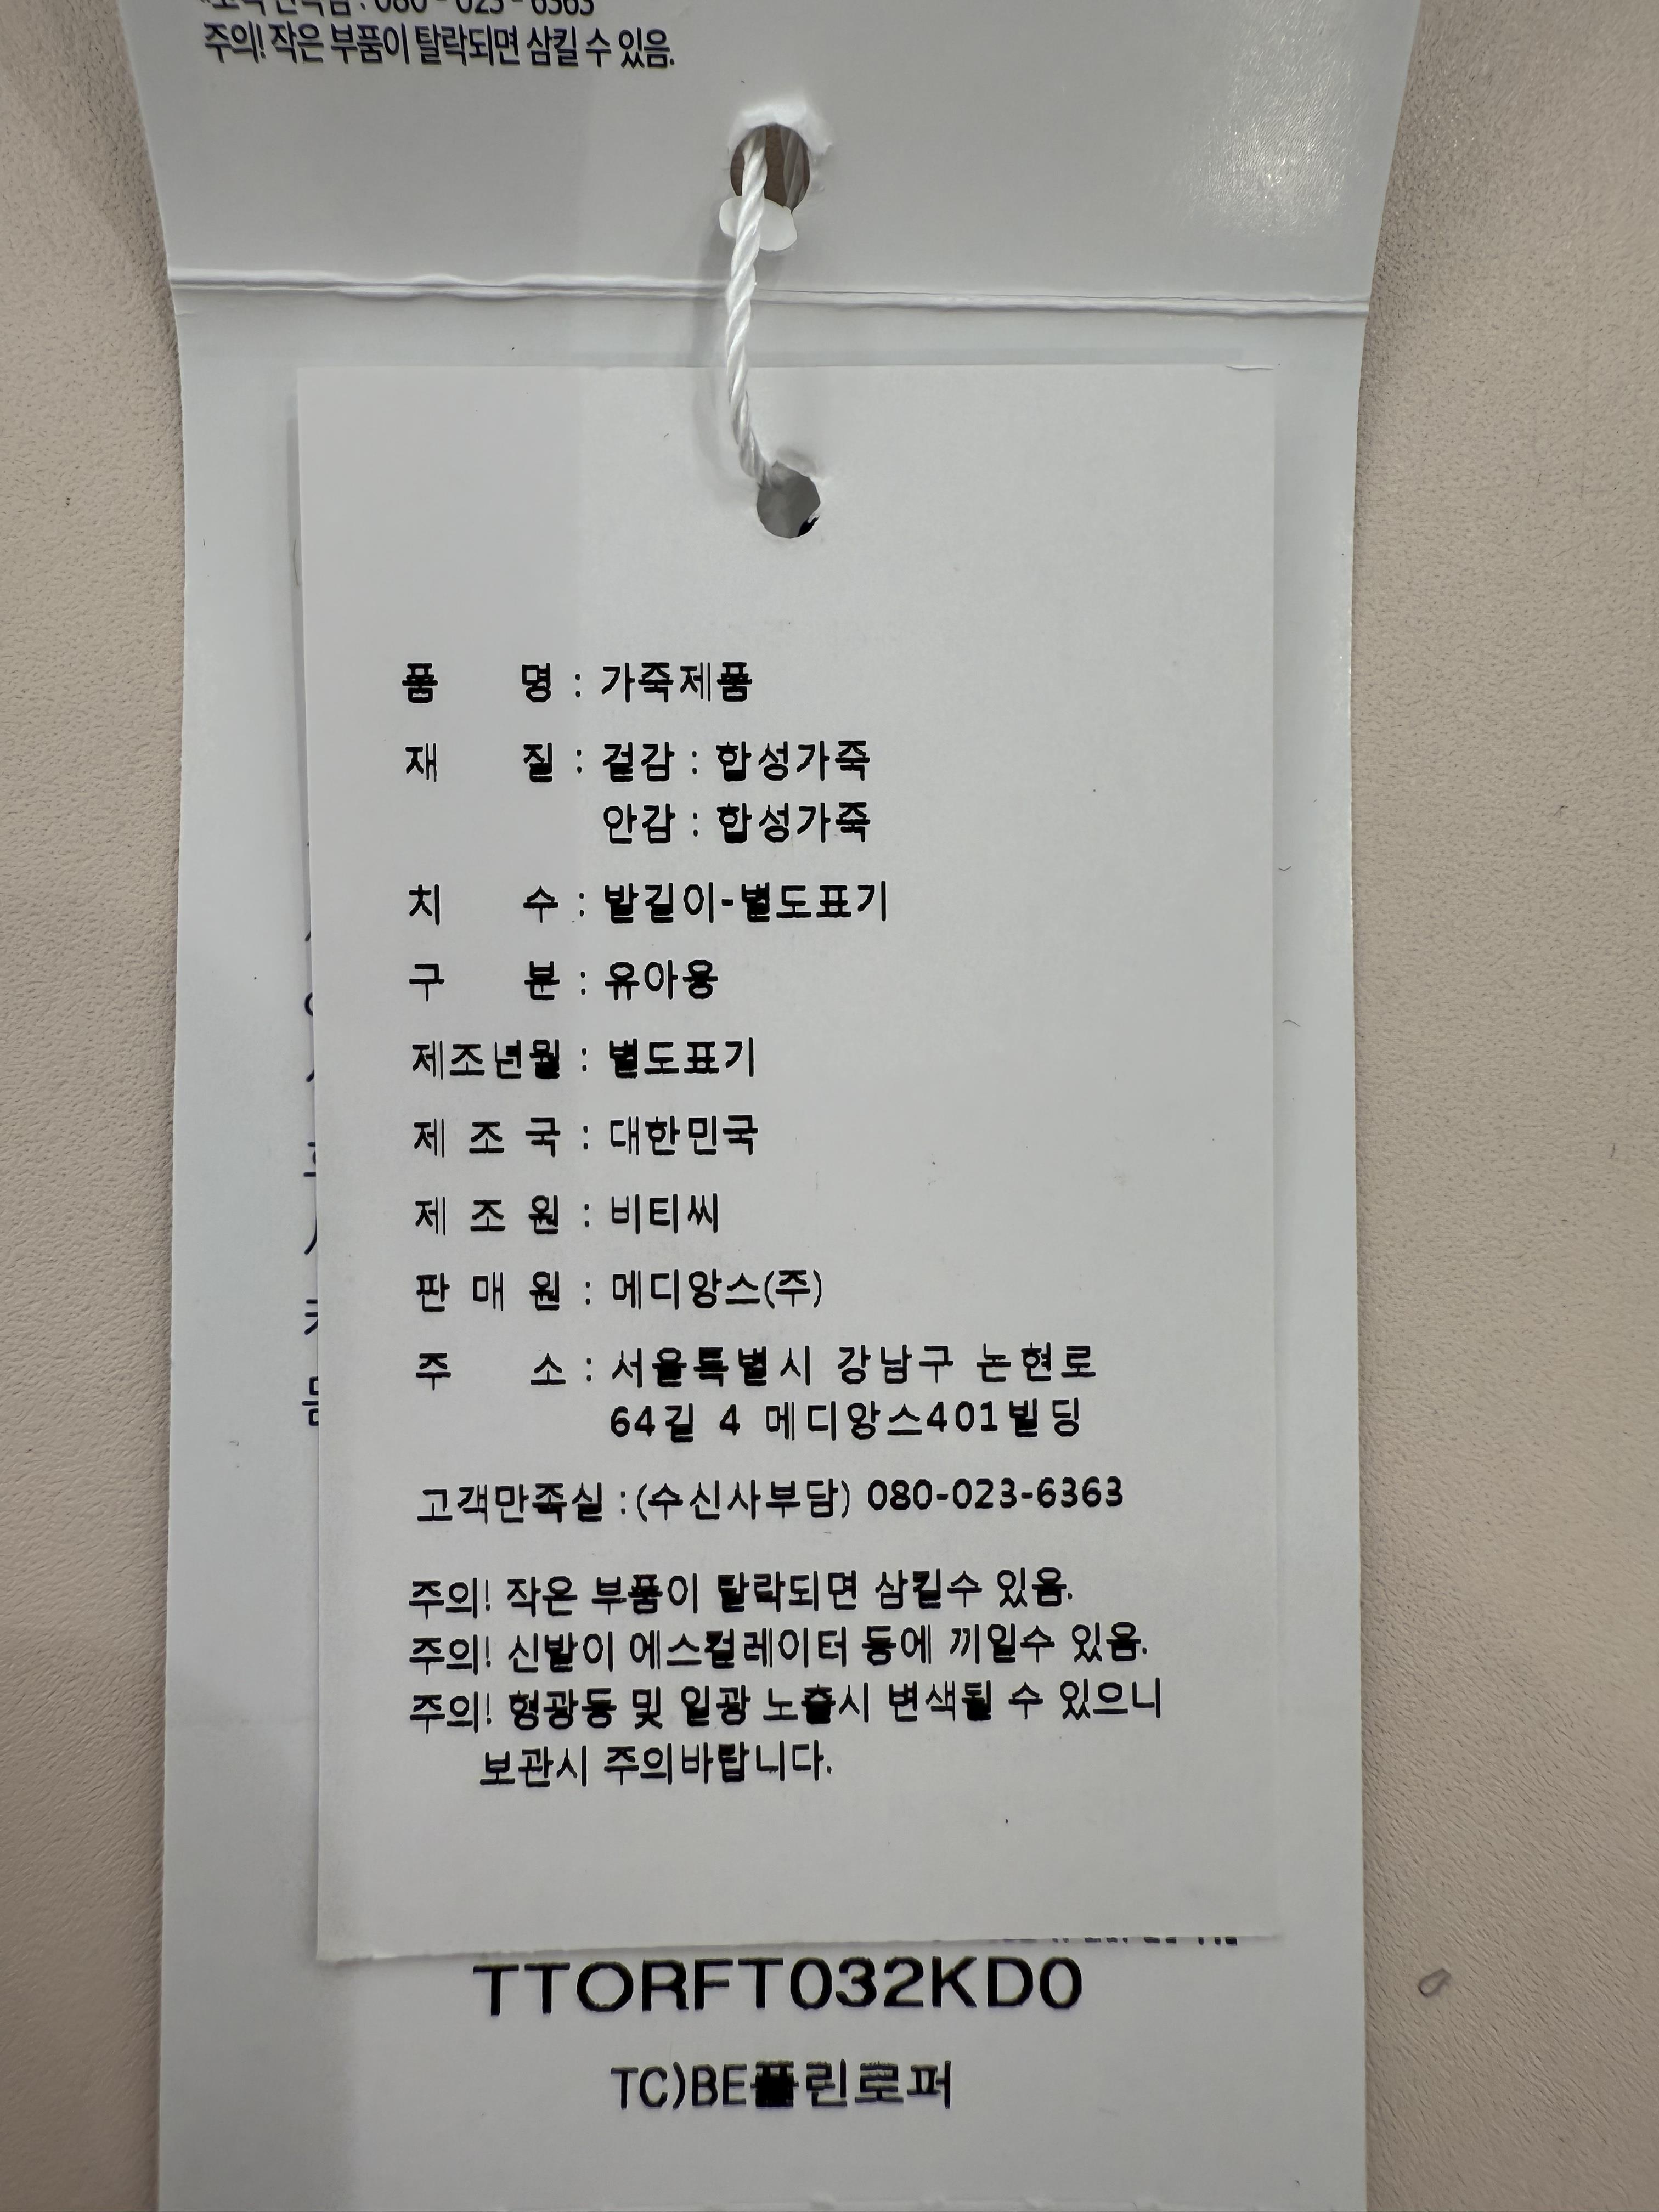 080 - 023 - 6363
주의! 작은 부품이 탈락되면 삼킬 수 있음.
품 명 : 가죽제품
재 질 : 겉감 : 합성가죽
안감 : 합성가죽
치 수 : 발길이-별도표기
구 분 : 유아용
제조년월 : 별도표기
제 조 국 : 대한민국
제 조 원 : 비티씨
판 매 원 : 메디앙스(주)
주 소 : 서울특별시 강남구 논현로
64길 4 메디앙스401빌딩
고객만족실 : (수신사부담) 080-023-6363
주의! 작은 부품이 탈락되면 삼킬수 있음.
주의! 신발이 에스컬레이터 등에 끼일수 있음.
주의! 형광등 및 일광 노출시 변색될 수 있으니
보관시 주의바랍니다.
TTORFT032KD0